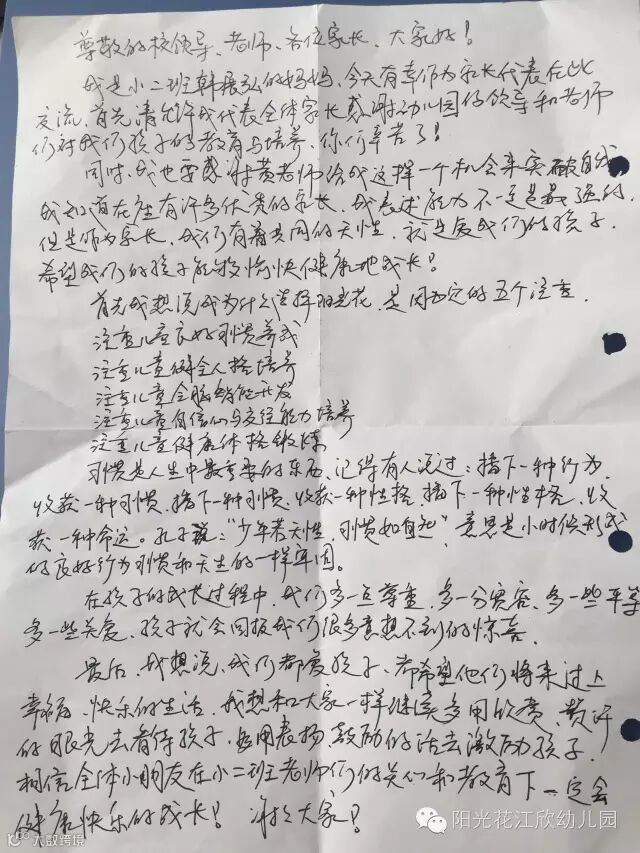 尊敬的校领导、老师、各位家长、大家好！
我是小二班韩振弘的妈妈，今天有幸作为家长代表在此
交流，首先请允许我代表全体家长感谢幼儿园的领导和老师
们对我们孩子的教育与培养，你们辛苦了！
同时，我也要感谢黄老师给我这样一个机会来突破自我，
我知道在座有许多优贵的家长，我表述能力不一定是最强的，
但是作为家长，我们有着共同的天性，就是爱我们的孩子，
希望我们的孩子能够愉快健康地成长！
首先我想说我为什么选择阳光花，是因为它的五个注重，
注重儿童良好习惯养成
注重儿童健全人格培养
注重儿童全脑智能开发
注重儿童自信心与交往能力培养
注重儿童健康体格锻炼
习惯是人生中最重要的东西，记得有人说过：播下一种行为，
收获一种习惯，播下一种习惯，收获一种性格，播下一种性格，收
获一种命运。孔子说：“少年若天性，习惯如自然”，意思是小时候形成
的良好行为习惯和天生的一样牢固。
在孩子的成长过程中，我们多一点尊重，多一分宽容、多一些平等
多一些关爱，孩子就会回报我们很多意想不到的惊喜。
最后，我想说，我们都爱孩子，都希望他们将来过上
幸福、快乐的生活，我想和大家一样继续多用欣赏、赞许
的眼光去看待孩子，多用表扬、鼓励的话去激励孩子，
相信全体小朋友在小二班老师们的关心和教育下一定会
健康快乐的成长！谢谢大家！
大数跨境
阳光花江欣幼儿园